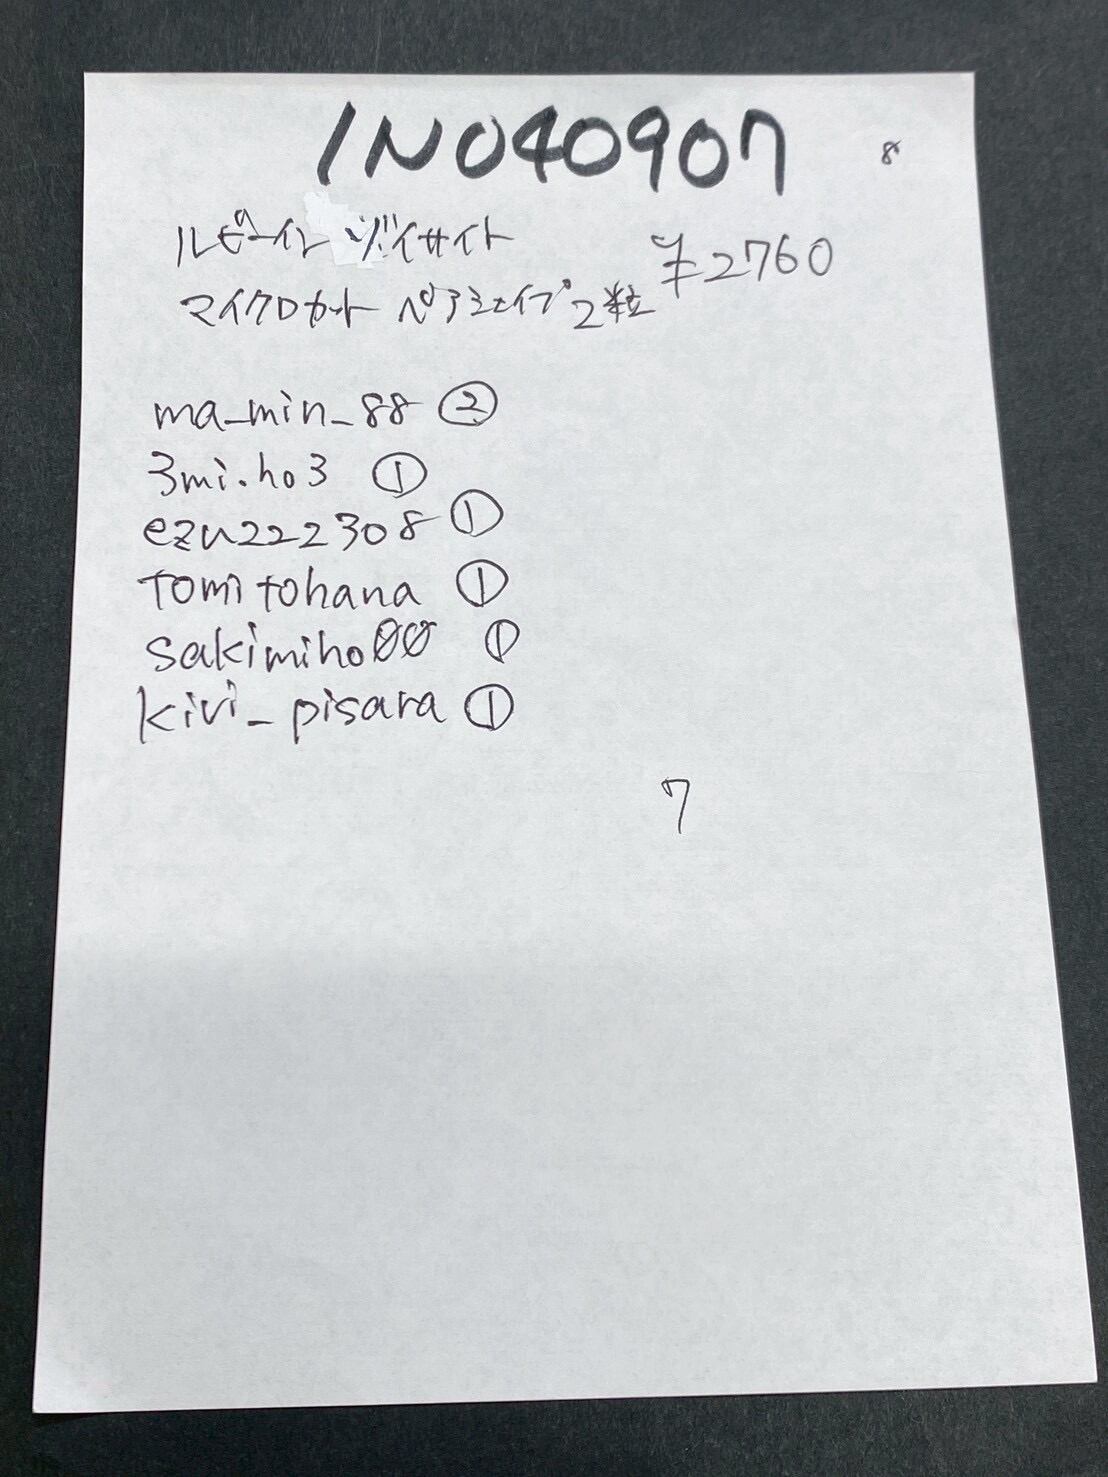 INO40907 8
ルビーインゾイサイト ¥2760
マイクロカット ペアシェイプ 2粒
ma_min_88 ②
3mi.ho3 ①
ezu222308 ①
tomitohana ①
sakimiho00 ①
kivi_pisara ①
7